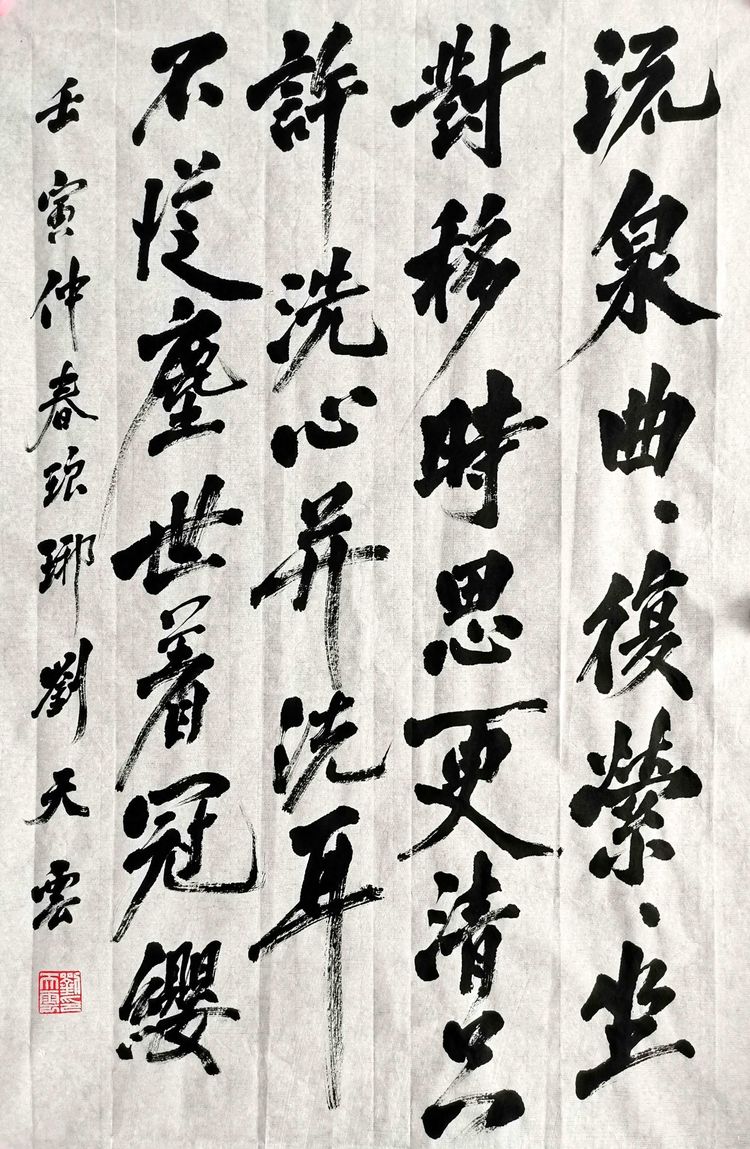 流泉曲、復縈、坐
對移時思更清只
許洗心并洗耳
不從塵世着冠纓
壬寅仲春琅琊劉天雲